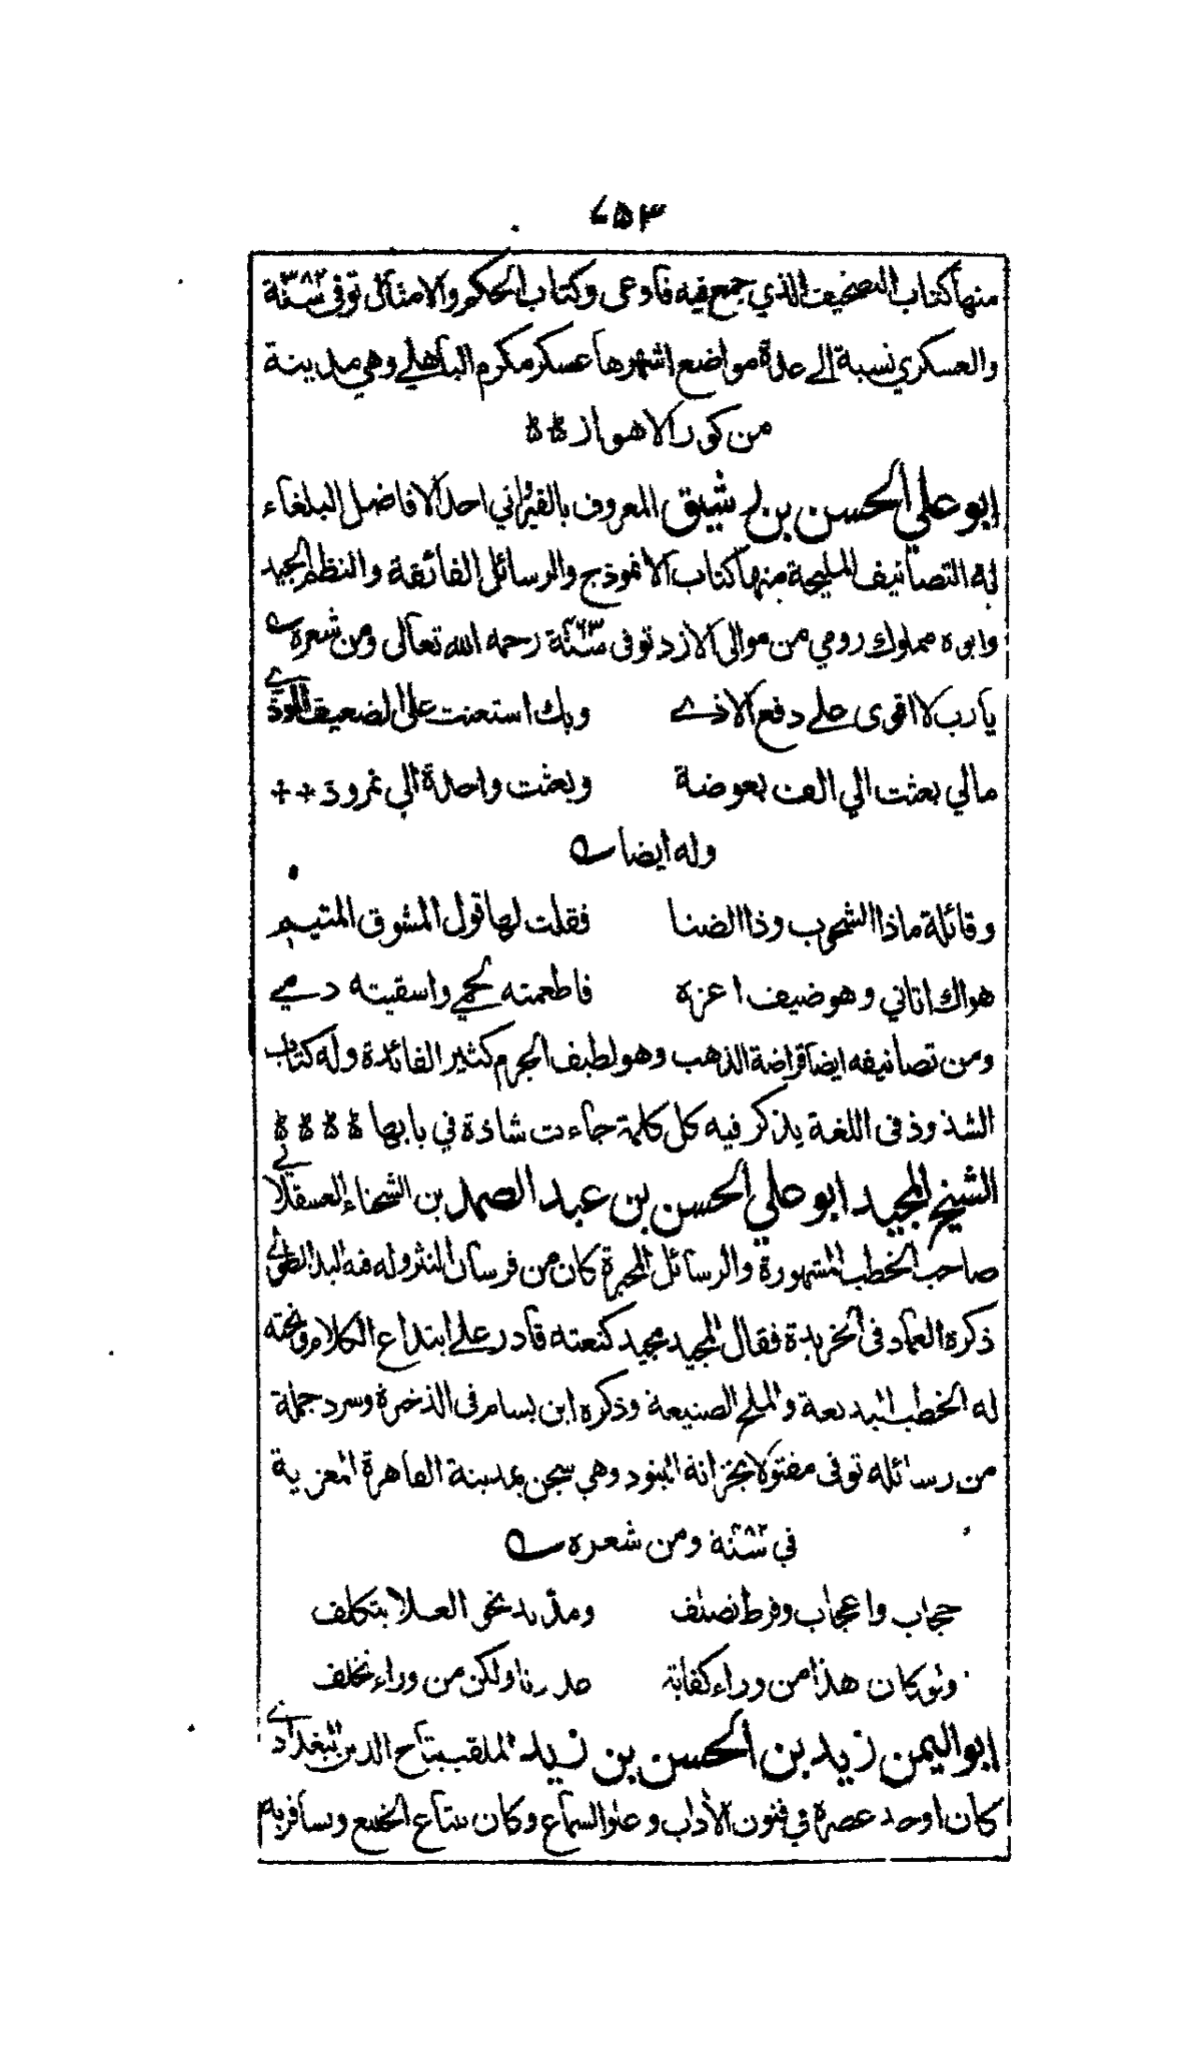 ٤٥٣
منها كتاب التصحيف الذي جمع فيه فأوعى وكتاب الحكم والامثال توفى سنة ٣٨٢
والعسكري نسبة الى عدة مواضع اشهرها عسكر مكرم الباهلي وهي مدينة
من كور الاهواز
ابو علي الحسن بن رشيق المعروف بالقيراني احد الافاضل البلغاء
له التصانيف المليحة منها كتاب الانموذج والرسائل الفائقة والنظم الجيد
وابوه مملوك رومي من موالى الازد توفى سنة ٤٦٣ رحمه الله تعالى ومن شعره
يارب لا اقوى على دفع الاذى وبك استعنت على الضعيف الموذى
مالي بعثت الي الف بعوضة وبعثت واحدة الي نمروذ
وله ايضا
وقائلة ماذا الشحوب وذا الضنا فقلت لها قول المشوق المتيم
هواك اتاني وهو ضيف اعزه فاطعمته لحمي واسقيته دمي
ومن تصانيفه ايضا قراضة الذهب وهو لطيف الجرم كثير الفائدة وله كتاب
الشذوذ فى اللغة يذكر فيه كل كلمة جاءت شاذة في بابها
الشيخ المجيد ابو علي الحسن بن عبد الصمد بن الشخناء العسقلاني
صاحب الخطب المشهورة والرسائل المحبرة كان من فرسان النثر وله فيه اليد الطولى
ذكره العماد فى الخريدة فقال المجيد مجيد كنعته قادر على ابتداع الكلام ونحته
له الخطب البديعة والملح الصنيعة وذكره ابن بسام فى الذخيرة وسرد جملة
من رسائله توفى مقتولا بخزانة البنود وهي سجن بمدينة القاهرة المعزية
في سنة ٤٨٢ ومن شعره
حجاب واعجاب وفرط تصلف ومد يد نحو العلا بتكلف
ولو كان هذا من وراء كفاية عذرنا ولكن من وراء تخلف
ابو اليمن زيد بن الحسن بن زيد الملقب بتاج الدين البغدادي
كان اوحد عصره في فنون الأداب وعلو السماع وكان يبتاع الخليع ويسافر به